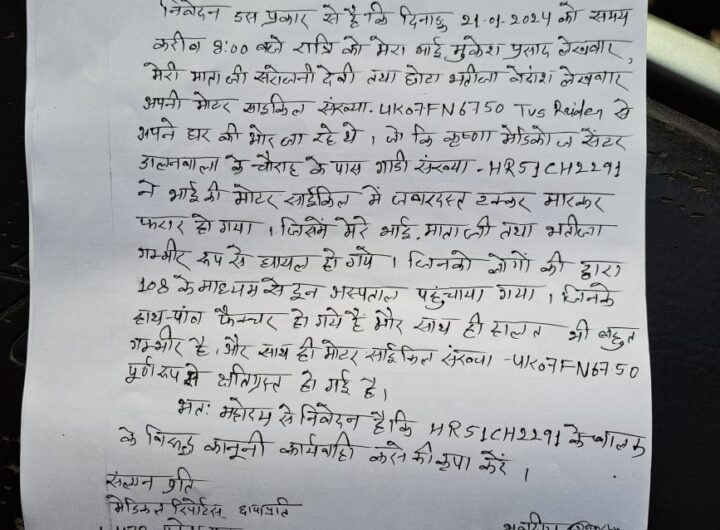 निवेदन इस प्रकार से है कि दिनांक 21-01-2024 को समय
करीब 8:00 बजे रात्रि को मेरा भाई मुकेश प्रसाद लेखवार,
मेरी माता जी सरोजनी देवी तथा छोटा भतीजा वेदांश लेखवार
अपनी मोटर साइकिल संख्या- UK07FN6750 TVS Raider से
अपने घर की ओर जा रहे थे। जो कि कृष्णा मेडिकोज सेंटर
डालनवाला के चौराहे के पास गाडी संख्या - HR51CH2291
ने भाई की मोटर साईकिल में जबरदस्त टक्कर मारकर
फरार हो गया। जिसमें मेरे भाई, माता जी तथा भतीजा
गम्भीर रूप से घायल हो गये। जिनको लोगों की द्वारा
108 के माध्यम से दून अस्पताल पहुंचाया गया। जिनके
हाथ-पांव फ्रैक्चर हो गये है और साथ ही हालत भी बहुत
गम्भीर है, और साथ ही मोटर साईकिल संख्या - UK07FN6750
पूर्ण रूप से क्षतिग्रस्त हो गई है।
अतः महोदय से निवेदन है कि HR51CH2291 के चालक
के विरूद्ध कानूनी कार्यवाही करने की कृपा करें।
संलग्न प्रति
मेडिकल रिपोर्टस् छायाप्रति